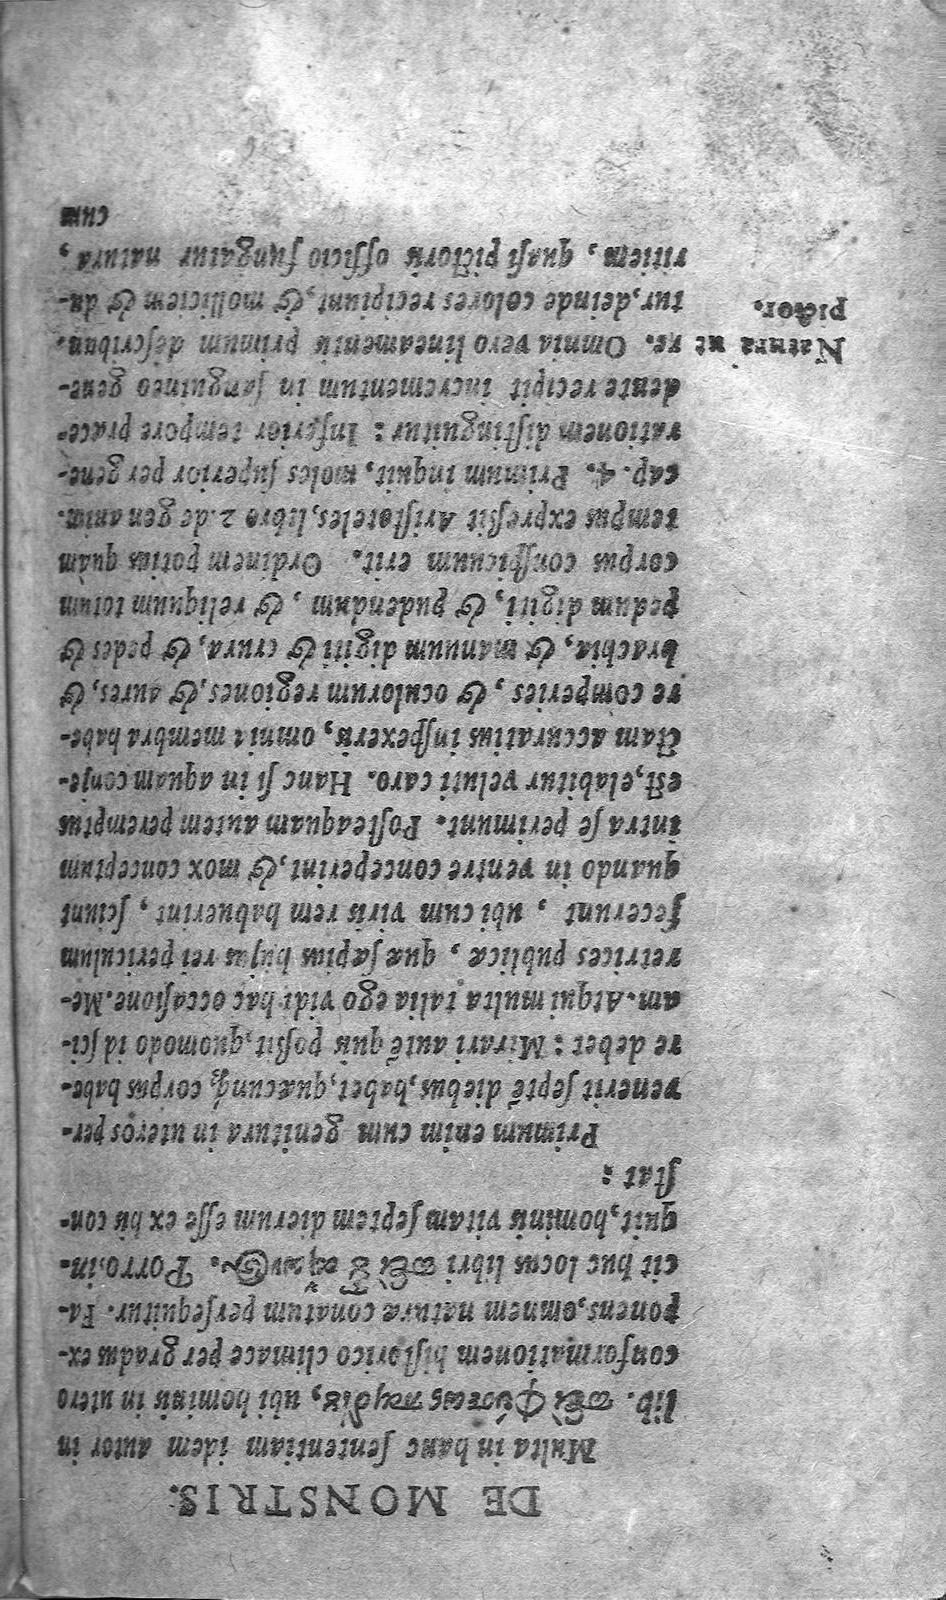 DE MONSTRIS.
Multa in hanc ſententiam idem autor in
lib. περὶ φύσεως παιδίȣ, ubi hominis in utero
conformationem hiſtorico climace per gradus ex-
ponens, omnem naturæ conatum perſequitur. Fa-
cit huc locus libri περὶ Porrò, in-
quit, hominis vitam ſeptem dierum eſſe ex his con-
ſtat:
Primum enim cum genitura in uteros per-
venerit ſeptē diebus, habet, quæcunq; corpus habe-
re debet: Mirari autē quis poßit, quomodo id ſci-
am. Atqui multa talia ego vidi hac occaſione. Me-
retrices publicæ, quæ ſæpius hujus rei periculum
fecerunt, ubi cum viris rem habuerint, ſciunt
quando in ventre conceperint, & mox conceptum
intra ſe perimunt. Poſteaquam autem peremptus
eſt, elabitur veluti caro. Hanc ſi in aquam conje-
ctam accuratius inſpexeris, omnia membra habe-
re comperies, & oculorum regiones, & aures, &
brachia, & manuum digiti & crura, & pedes &
pedum digiti, & pudendum, & reliquum totum
corpus conſpicuum erit. Ordinem potius quàm
tempus expreßit Ariſtoteles, libro 2. de gen anim.
cap. 4. Primum inquit, moles ſuperior per gene-
rationem diſtinguitur: Inferior tempore præce-
dente recipit incrementum in ſanguineo gene-
re. Omnia vero lineamentis primum deſcribun-
tur, deinde colores recipiunt, & molliciem & du-
ritiem, quaſi pictoris officio fungatur natura,
cum
Natura ut
pictor.